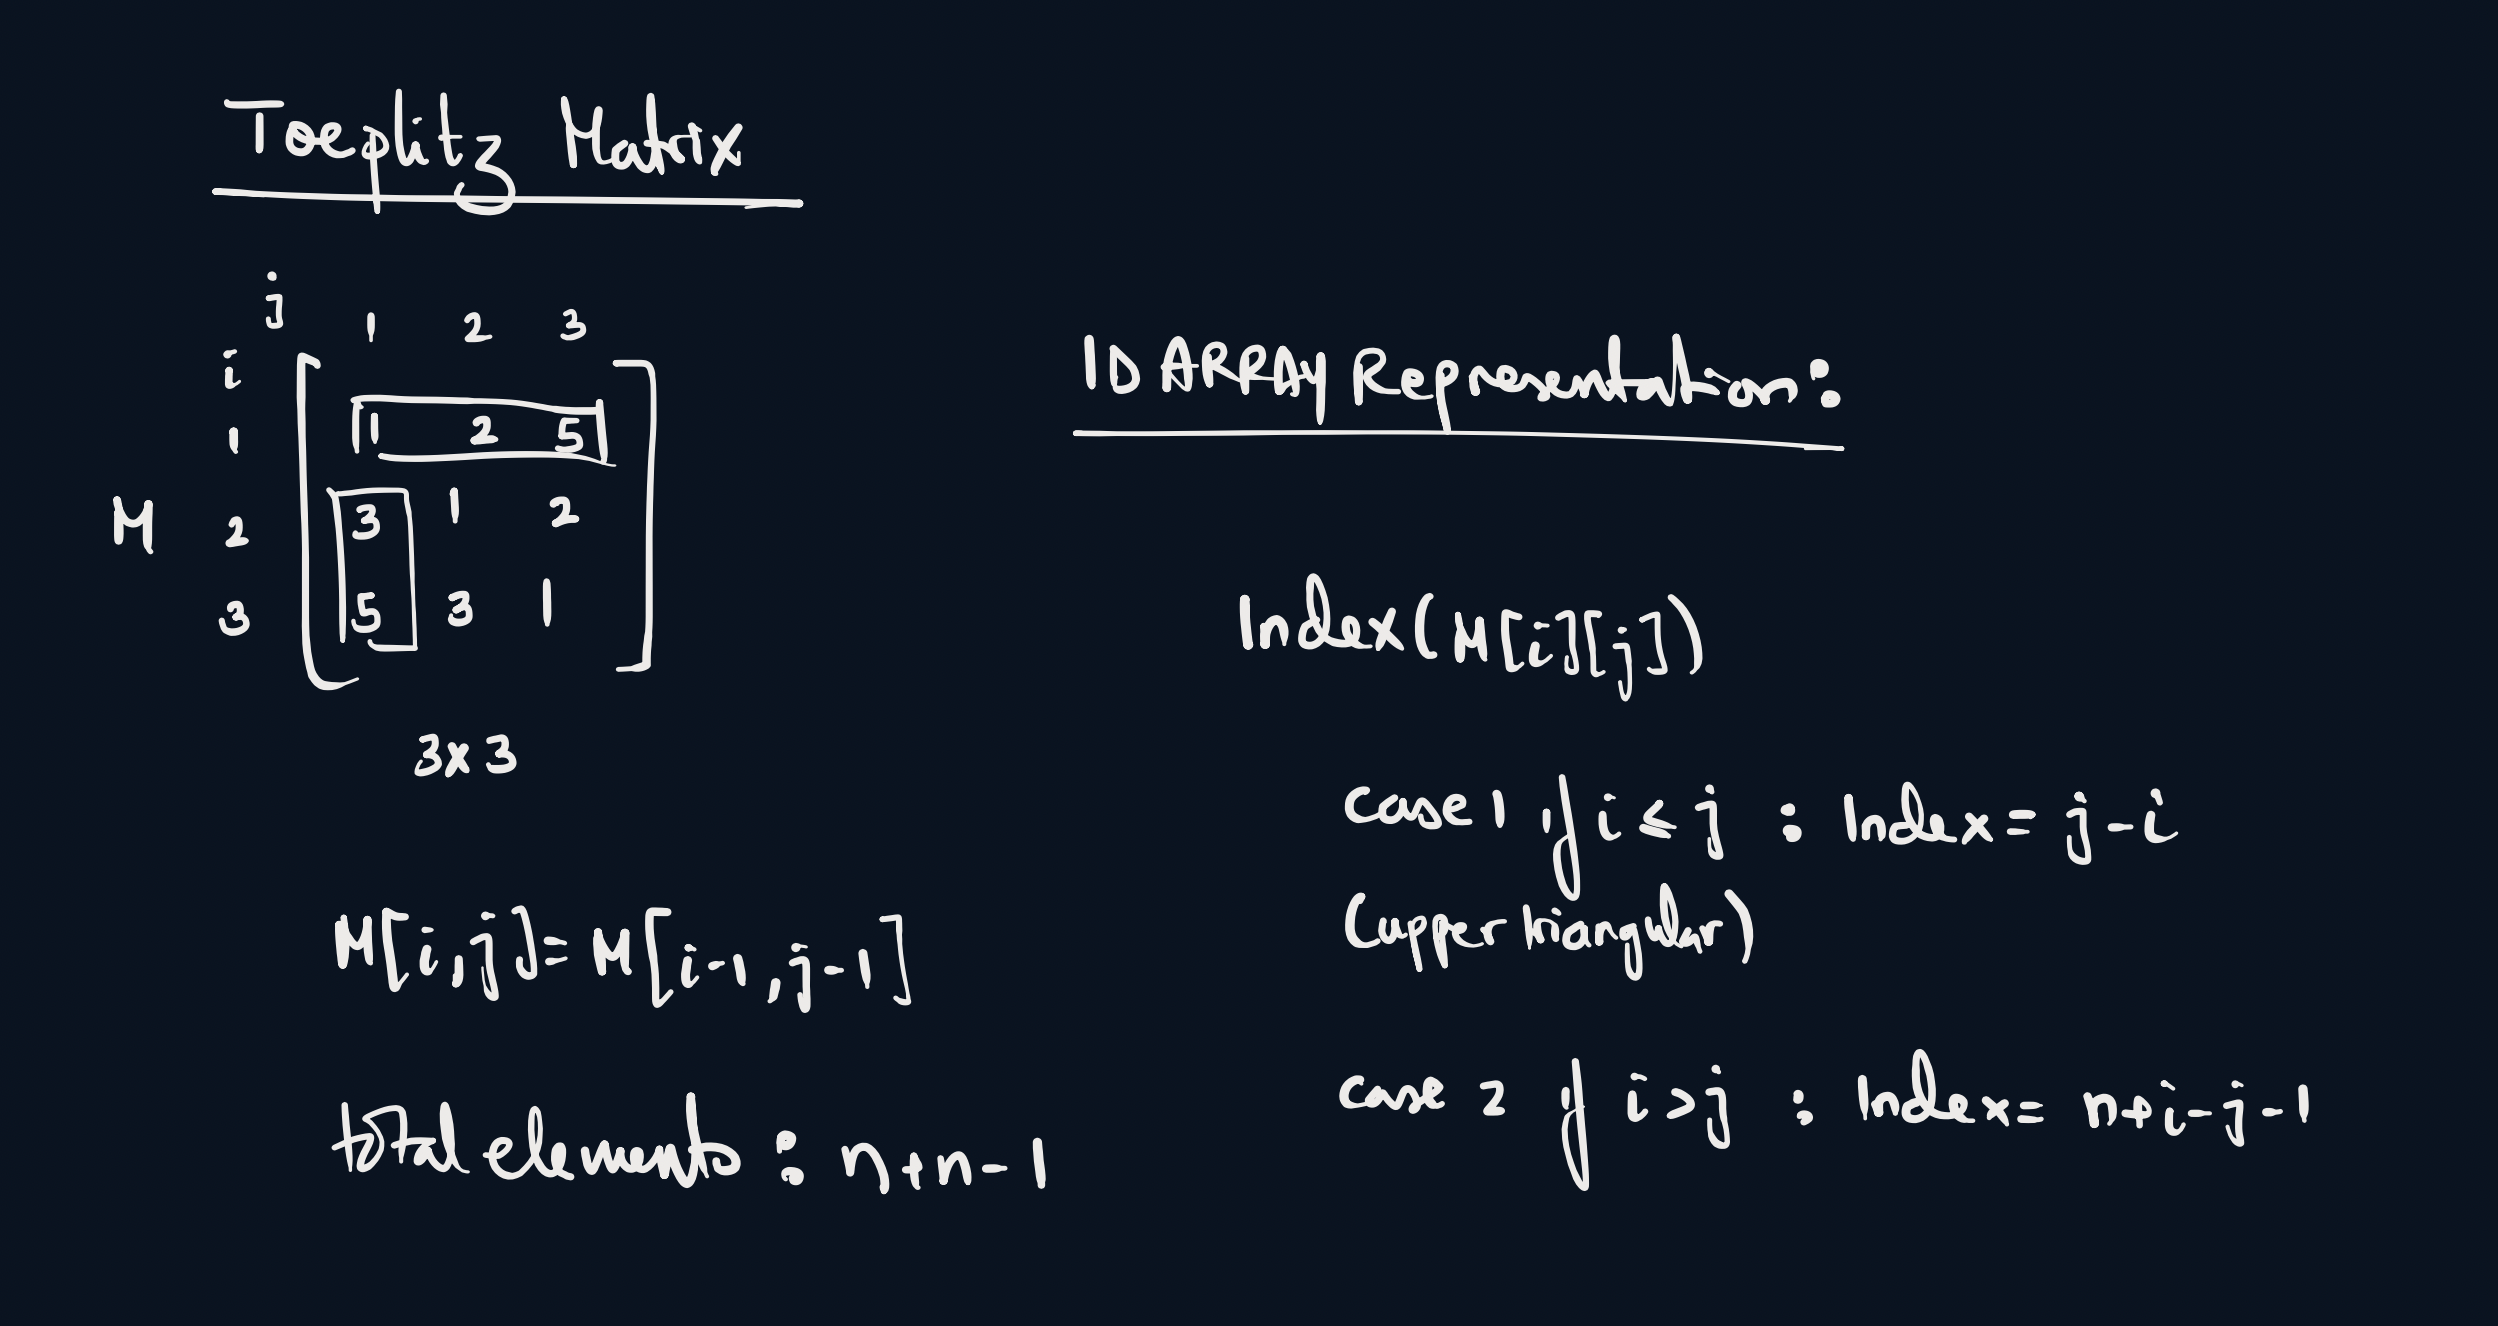 Toeplitz Matrix
j
i 1 2 3
1 1 2 5
M 2 3 1 2
3 5 3 1
3x3
M[i,j] = M[i-1,j-1]
total elements : n+n-1
1D ARRAy Representation :
Index (M[i][j])
Case 1 if i≤j : Index = j-i
(upper triangular)
case 2 if i>j : Index = n+i-j-1